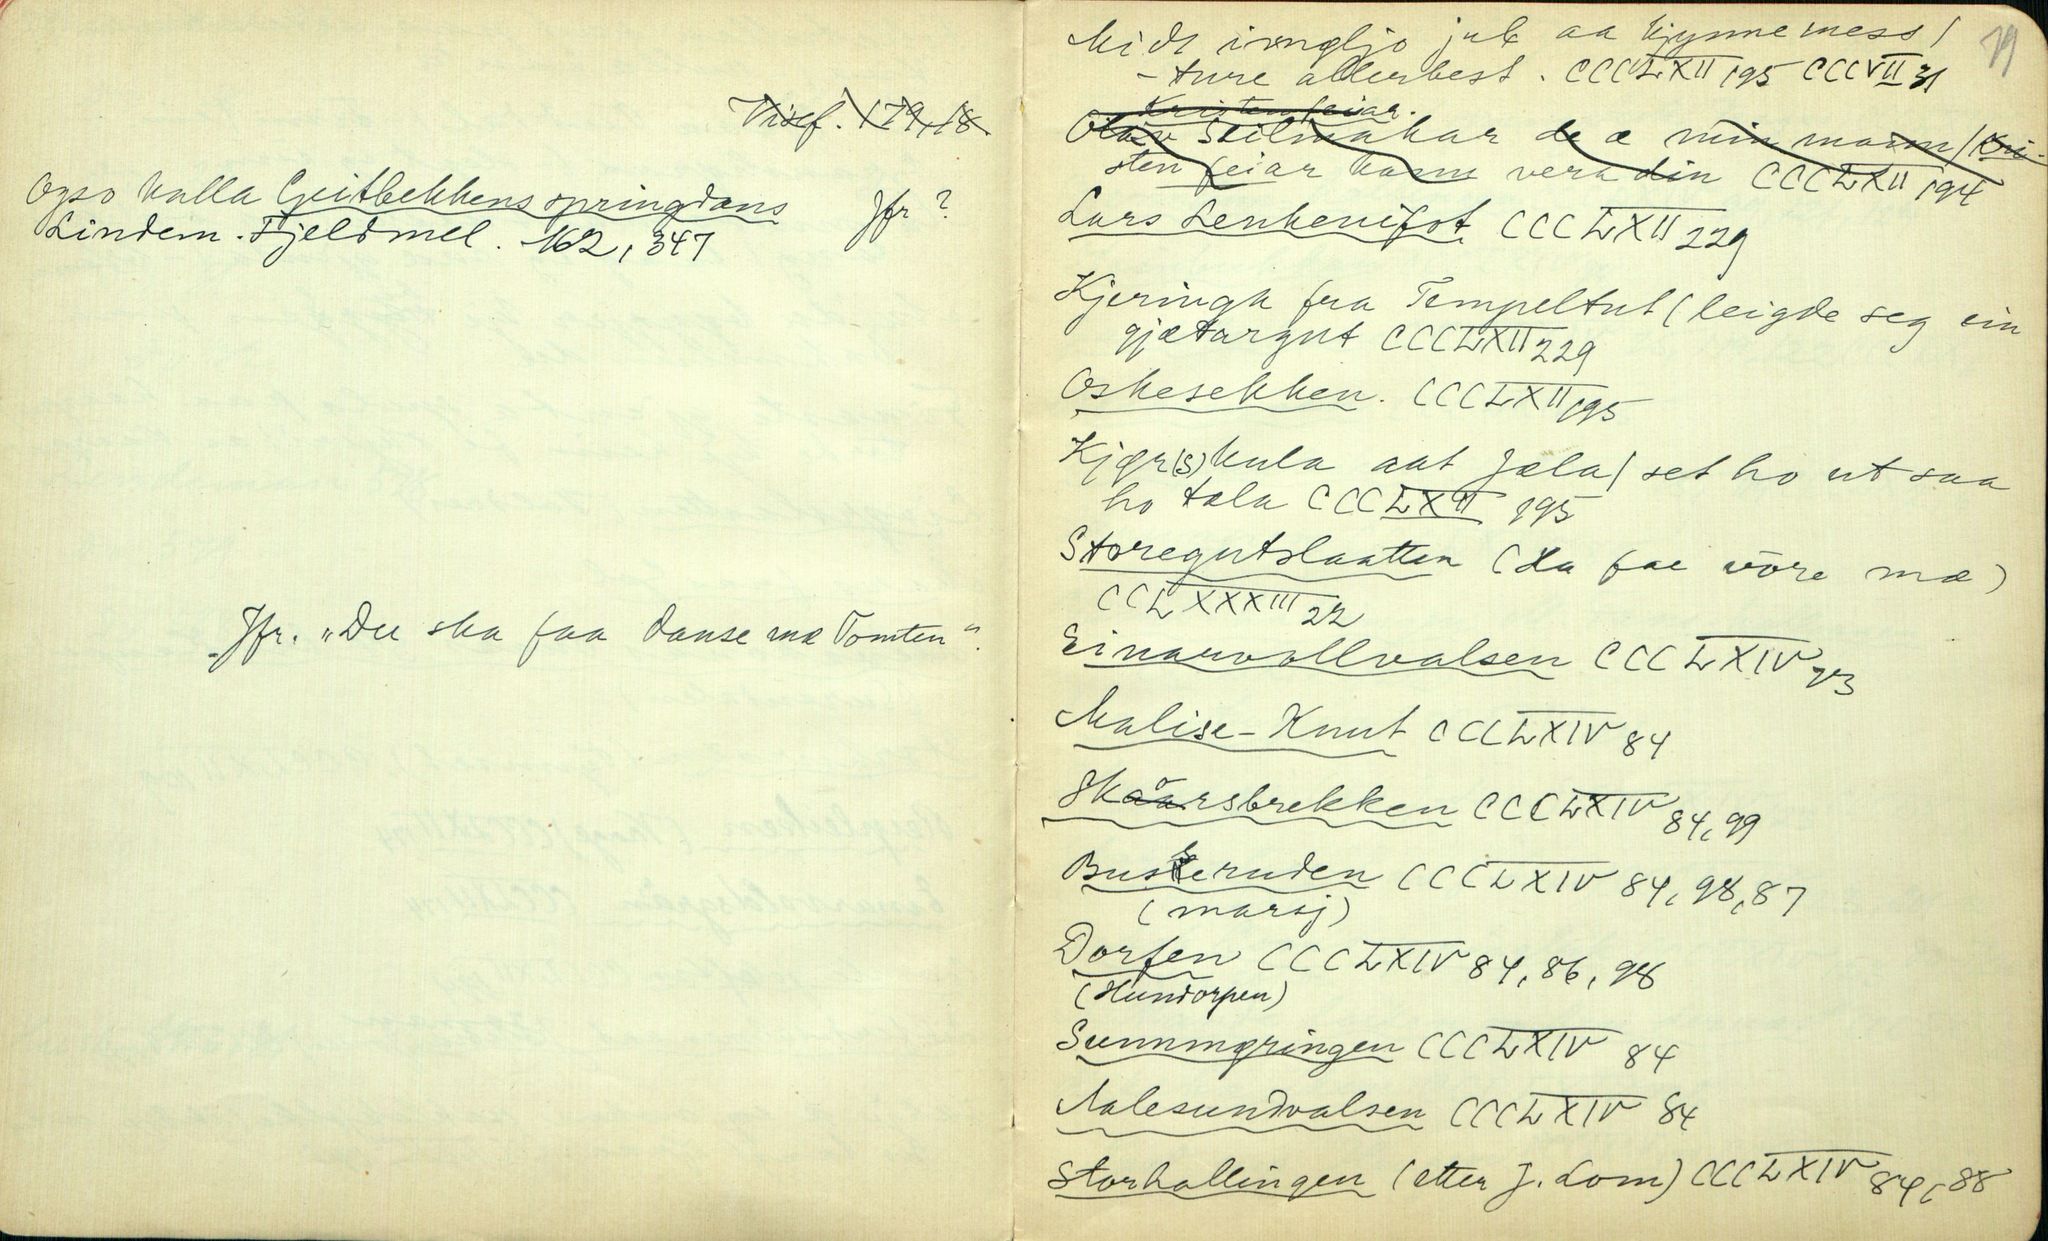 Visef. 179, 18.
Ogso kalla Geitbekkens springdans Jfr ?
Lindem. Fjeldmel. 162, 347
Jfr. "Du ska faa danse mæ Tomten".
79
Midt imyljo jul aa kjynnemess /
-ture allerbest. CCCLXII 195 CCCVII 31
Kristenfeiar.
Olav Seilmakar de æ min mann / Kri-
sten feiar kann vera din CCCLXII 194
Lars Lenkenifot. CCCLXII 229
Kjeringa fra Tempeltut (leigde seg ein
gjætargut CCCLXII 229
Oskesekken. CCCLXII 195
Kjør(s) kula aat Jæla / set ho ut saa
ho tala CCCLXII 195
Storegutslaatten (La fae vöre mæ)
CCLXXXIII 22
Einarvollvalsen CCCLXIV 73
Malise-Knut CCCLXIV 84
Skaarsbrekken CCCLXIV 84, 99
Buskeruden CCCLXIV 84, 98, 87
(marsj)
Dorfen CCCLXIV 84, 86, 98
(Hundorpen)
Sunnmøringen CCCLXIV 84
Aalesundvalsen CCCLXIV 84
Storhallingen (etter J. Lom) CCCLXIV 84, 88